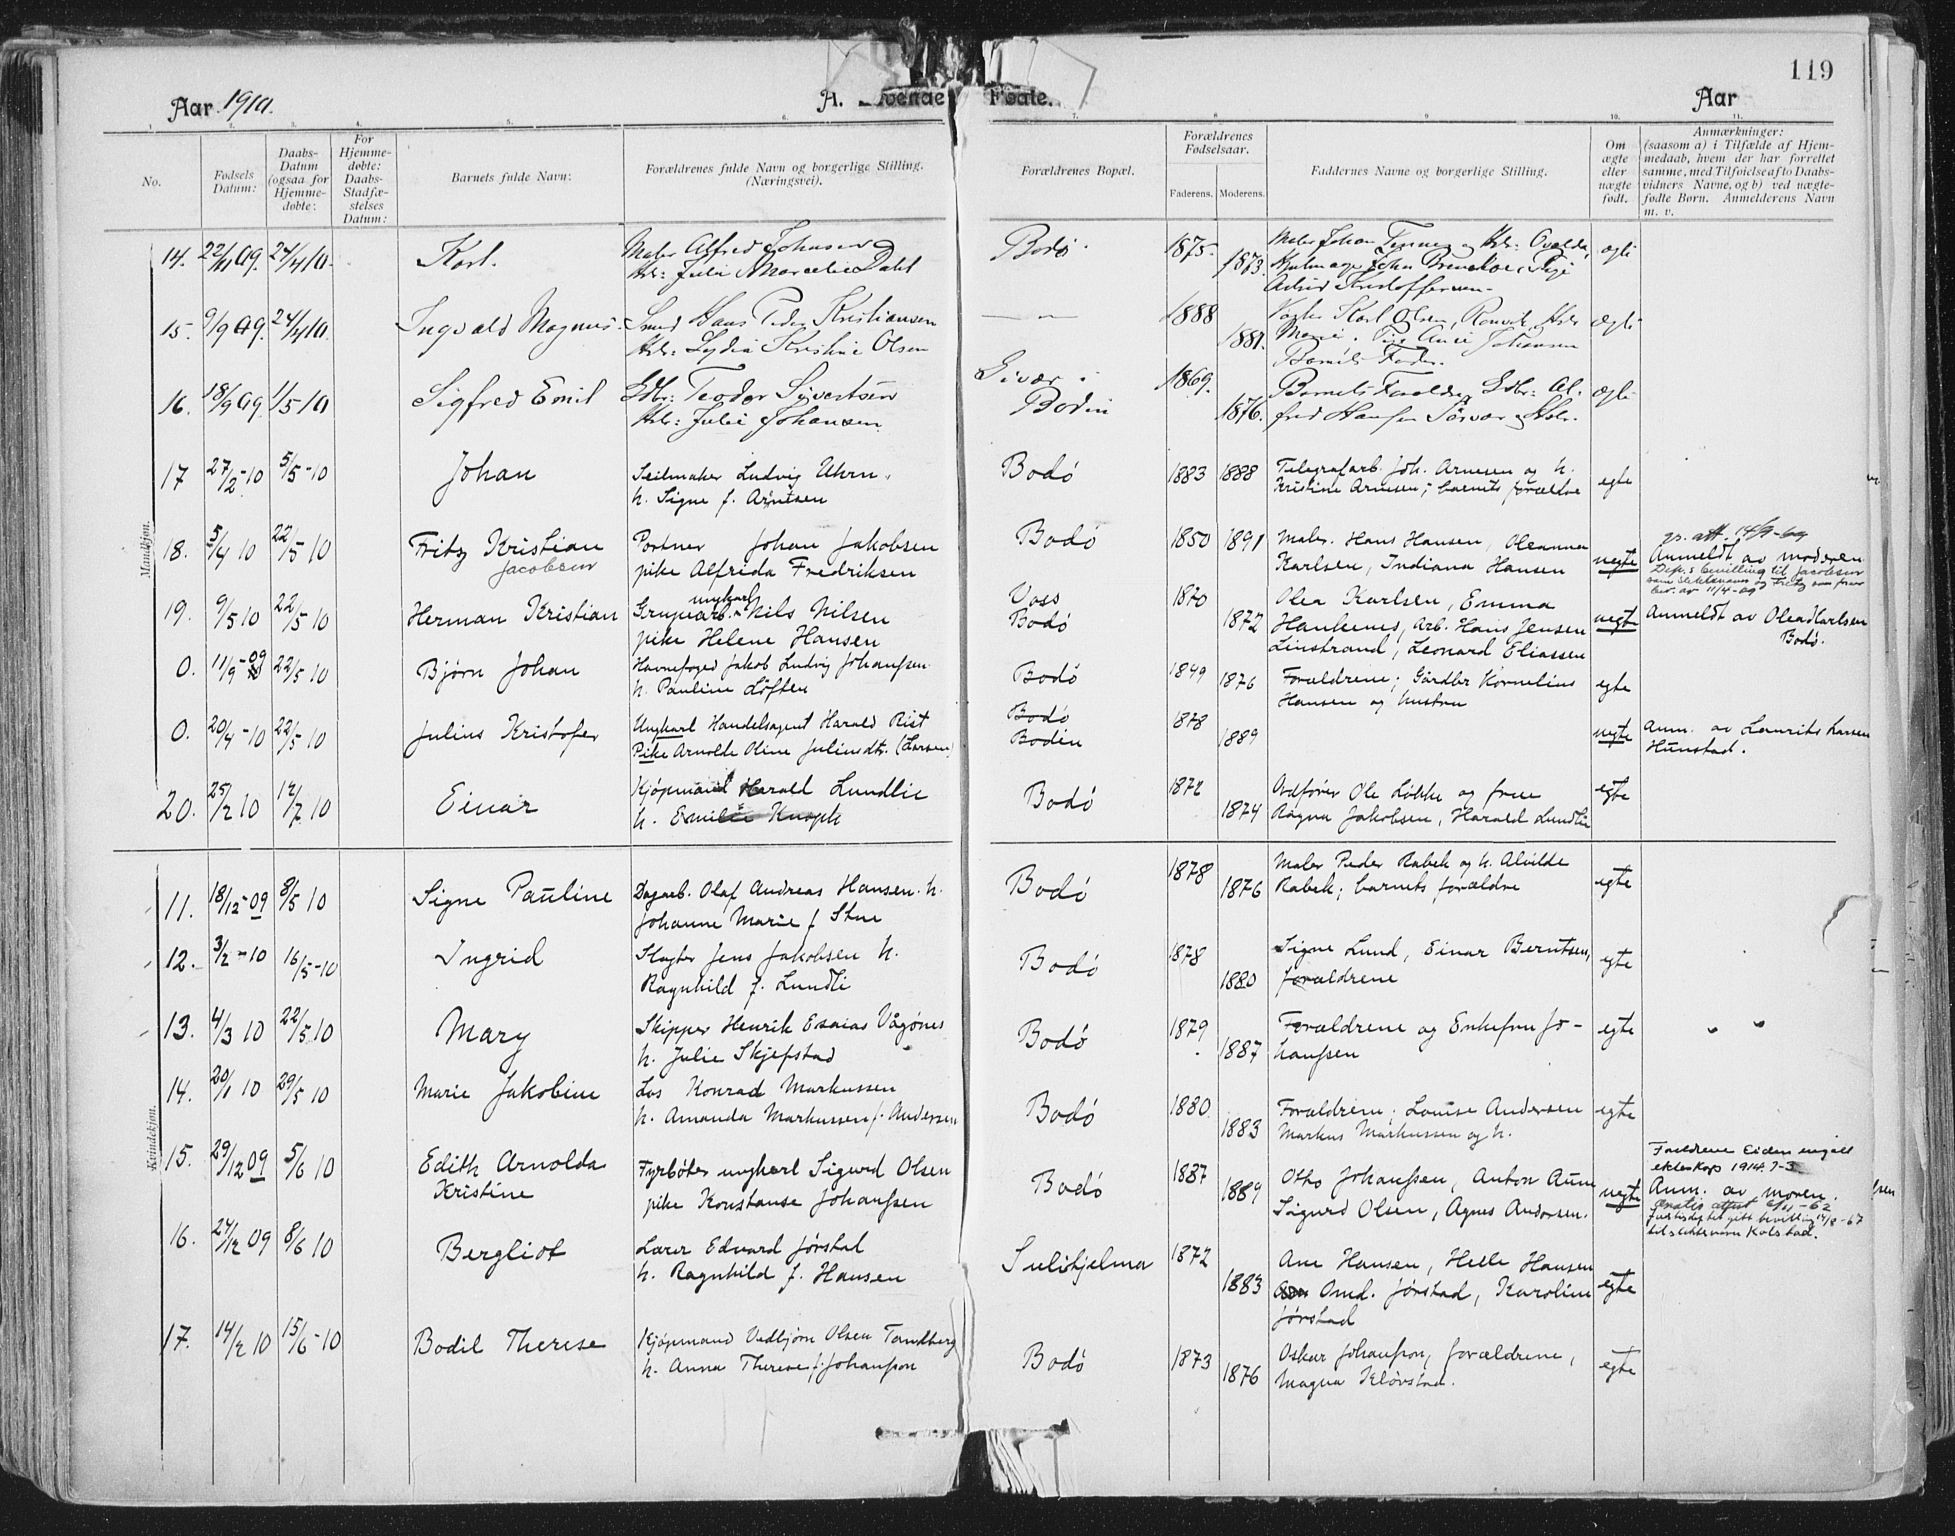 119
Aar 1910.
Fødte.
Aar
1. 2. 3. 4. 5. 6. 7. 8. 9. 10. 11.
No.
Fødsels Datum:
Daabs-Datum (ogsaa for Hjemme-døbte:
For Hjemme-døbte: Daabs-Stadfæ-stelses Datum:
Barnets fulde Navn:
Forældrenes fulde Navn og borgerlige Stilling. (Næringsvei).
Forældrenes Bopæl.
Forældrenes Fødselsaar.
Faderens. Moderens.
Faddernes Navne og borgerlige Stilling.
Om ægte eller uægte født.
Anmærkninger: (saasom a) i Tilfælde af Hjem-medaab, hvem der har forrettet samme, med Tilføielse af to Daabs-vidners Navne, og b) ved uægte-fødte Børn. Anmelderens Navn m. v.
Mandkjøn.
14. 22/11 09. 24/4 10. Karl. Maler Alfred Johansen Bodø. 1875. Maler Johan
Hstr: Julie Marcelie Dahl 1873.
Astrid Kristoffersen
15. 9/9 09. 24/4 10. Ingvald Magnus. Smed Hans Peder Kristiansen — " — 1888 Karl Olsen, Rønvik, Hstr
Hstr: Lydia Kristine Olsen 1881. Marie. Pige Anie Johansen
Barnets Fader.
16. 18/9 09. 1/5 10 Sigfred Emil Gbr: Teodor Sivertsen Givær i 1869. Barnets Forældre, Gbr: Al-
Hstr: Julie Johansen Bodin 1876. fred Hansen Sørvær og Hstr.
17 27/2-10 5/5-10 Johan Seilmaker Ludvig Uhrn. Bodø 1883 1888 Telegrafarb. Joh. Arntsen og h. egte
h. Signe f. Arntsen Kristine Arntsen; barnets forældre
18. 5/4 10 22/5 10 Fritz Kristian Portner Johan Jakobsen Bodø 1850 1891 Maler. Hans Hansen, Oleanna uegte Anmeldt av moderen
Jacobsen pike Alfrida Fredriksen Karlsen, Indiana Hansen
Dep.s bevilling til Jacobsen
som slektsnavn og Fritz som forn
19. 9/5 10 22/5 10 Herman Kristian Grugearb. ungkarl Nils Nilsen Voss 1870 Olea Karlsen, Emma uegte Anmeldt av Olea Karlsen
pike Helene Hansen Bodø 1872 Haukenes, Arb. Hans Jensen Bodø.
Linstrand, Leonard Eliassen
0. 11/9-09 22/5 10 Bjørn Johan Havnefoged Jakob Ludvig Johanssen Bodø 1849 1876 Forældrene; Gårdbr Kornelius egte
h. Pauline Løften Hansen og hustru
0. 20/4-10 22/5 10 Julius Kristofer Ungkarl Handelsagent Harald Rist Bodø 1878 uegte Anm. av Laurits Larsen
Pike Arnolde Oline Juliusdtr. (Larsen) Bodin 1889 Hunstad.
20. 25/2 10 12/7 10 Einar Kjøpmand Harald Lundlie Bodø 1872 Ordfører Ole Løkke og frue egte
h. Emilie Knoph 1874 Ragna Jakobsen, Harald Lundlie
Kvindekjøn.
11. 18/12-09 8/5 10 Signe Pauline Dagarb. Olaf Andreas Hansen. h. Bodø 1878 Maler Peder Rabek og h. Alvilde egte
Johanne Marie f. Stne 1876 Rabek; barnets forældre
12. 3/2-10 16/5-10 Ingrid Slagter Jens Jakobsen h. Bodø 1878 Signe Lund, Einar Berntsen, egte
Ragnhild f. Lundli 1880 forældrene
13. 4/3 10 22/5 10 Mary Skipper Henrik Esaias Vågønes Bodø 1879 Forældrene og Enkefru Jo- egte " "
h. Julie Skjefstad 1887 hanssen
14. 20/1 10 29/5 10 Marie Jakobine Los Konrad Markussen Bodø 1880 Forældrene; Louise Andersen egte
h. Amanda Markussen f. Andersen 1883 Markus Markussen og h.
15. 29/12 09 5/6 10 Edith Arnolda Fyrbøter ungkarl Sigurd Olsen Bodø 1887 Otto Johanssen, Anton Aune uegte Foreldrene
Kristine pike Konstanse Johanssen 1889 Sigurd Olsen, Agnes Andersen. ekteskap 1914.
Anm. av moren.
til slektsnavn Kolstad.
16. 24/12 09 8/6 10 Bergliot Lærer Edvard Jørstad Sulitjelma 1872 Ane Hansen, Helle Hansen
h. Ragnhild f. Hansen 1883 Amd. Jørstad, Karoline egte
Jørstad
17. 14/2 10 15/6-10 Bodil Therese Kjøpmand Vedbjørn Olsen Tandberg Bodø 1873 Oskar Johansson, forældrene, egte
h. Anna Therese f. Johansson 1876 Magna Kløvstad.